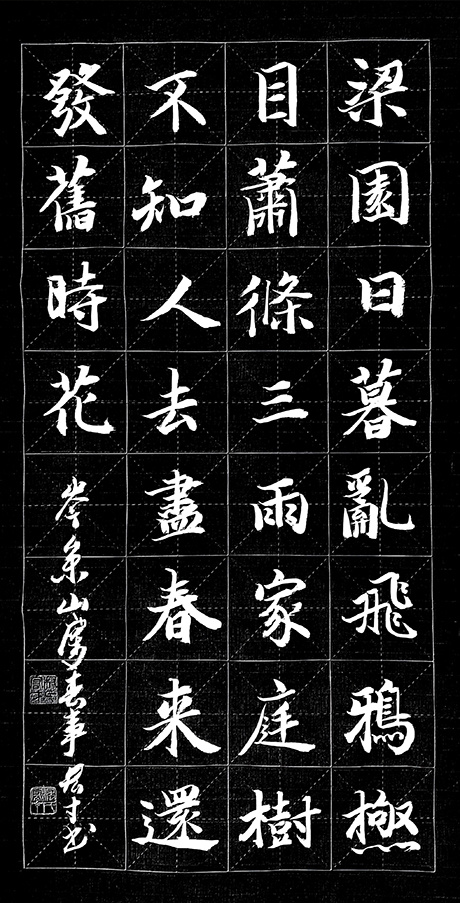 梁園日暮亂飛鴉極
目蕭條三兩家庭樹
不知人去盡春来還
發舊時花
岑参山房春事